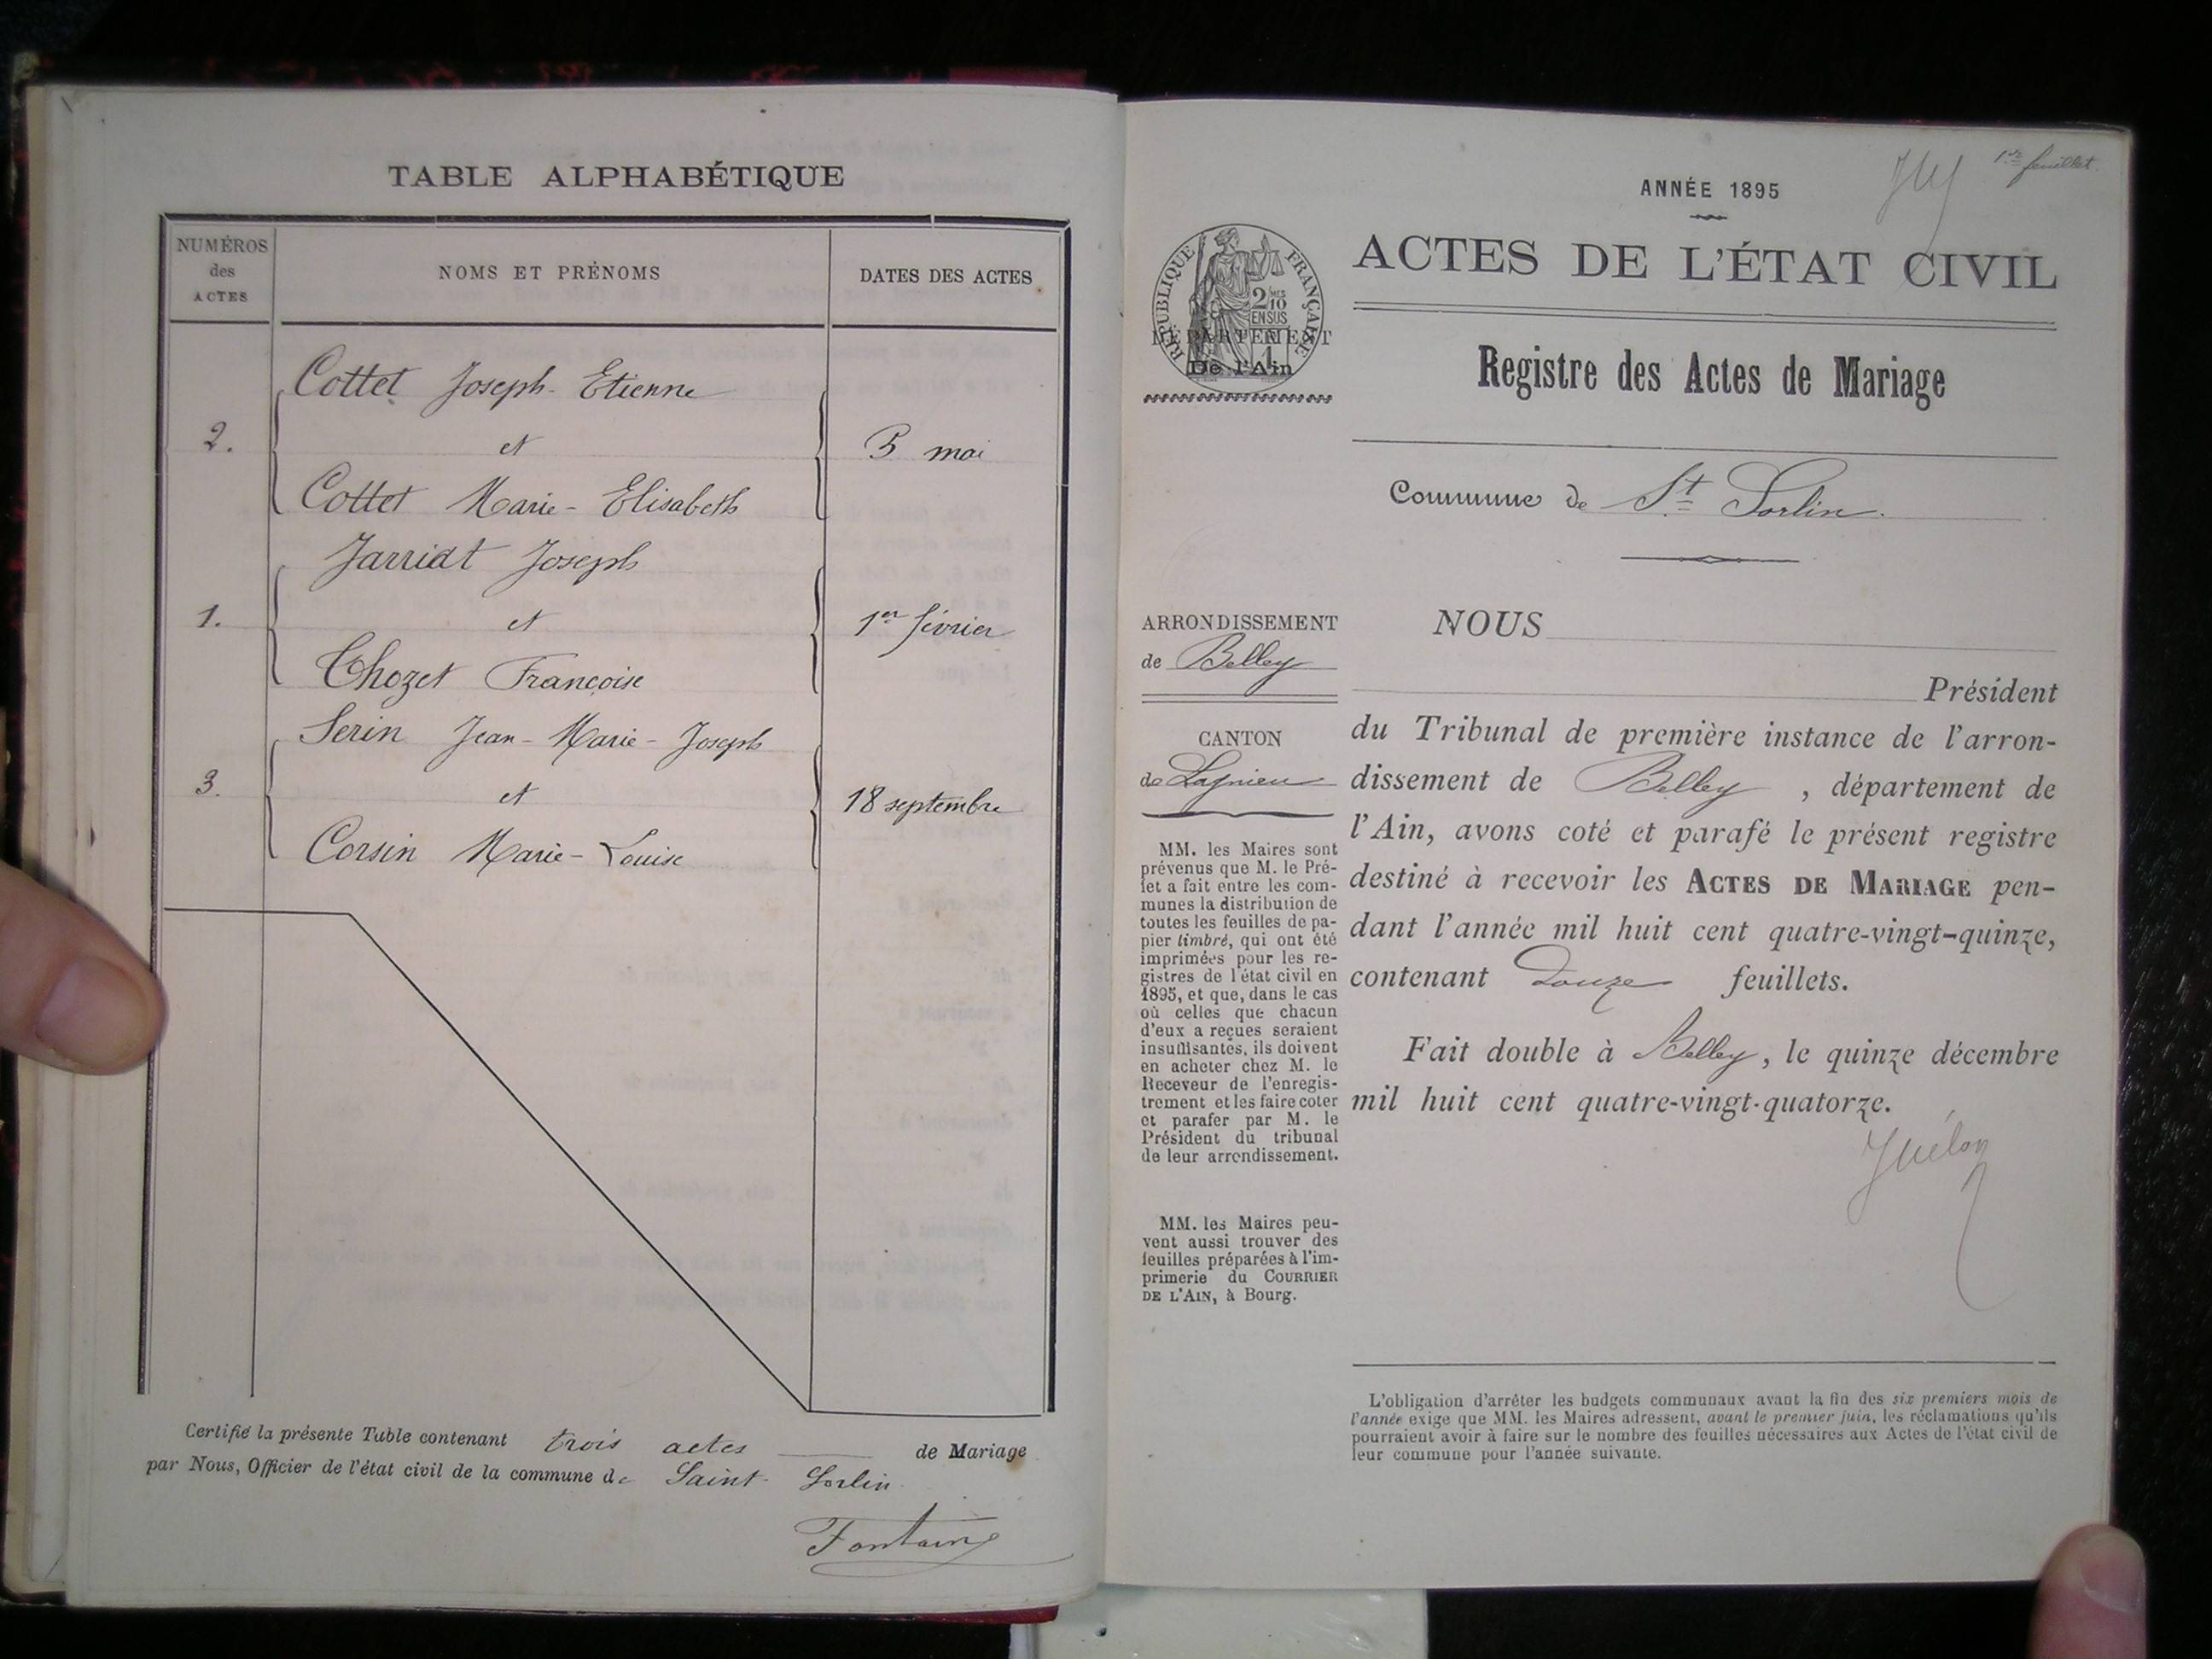 TABLE ALPHABÉTIQUE
NUMÉROS
des
ACTES
NOMS ET PRÉNOMS
DATES DES ACTES
Cottet Joseph-Etienne
2.
et
5 mai
Cottet Marie-Elisabeth
Jarriat Joseph
1.
et
1er février
Chozet Françoise
Serin Jean-Marie-Joseph
3.
et
18 septembre
Corsin Marie-Louise
Certifié la présente Table contenant trois actes de Mariage
par Nous, Officier de l'état civil de la commune de Saint-Sorlin
Fontaine
1er feuillet.
ANNÉE 1895
ACTES DE L'ÉTAT CIVIL
RÉPUBLIQUE FRANÇAISE
2/10MES
EN SUS
DÉPARTEMENT
De l'Ain
Registre des Actes de Mariage
Commune de St Sorlin.
ARRONDISSEMENT
de Belley
CANTON
de Lagnieu
MM. les Maires sont
prévenus que M. le Pré-
fet a fait entre les com-
munes la distribution de
toutes les feuilles de pa-
pier timbré, qui ont été
imprimées pour les re-
gistres de l'état civil en
1895, et que, dans le cas
où celles que chacun
d'eux a reçues seraient
insuffisantes, ils doivent
en acheter chez M. le
Receveur de l'enregis-
trement et les faire coter
et parafer par M. le
Président du tribunal
de leur arrondissement.
MM. les Maires peu-
vent aussi trouver des
feuilles préparées à l'im-
primerie du COURRIER
DE L'AIN, à Bourg.
NOUS
Président
du Tribunal de première instance de l'arron-
dissement de Belley, département de
l'Ain, avons coté et parafé le présent registre
destiné à recevoir les ACTES DE MARIAGE pen-
dant l'année mil huit cent quatre-vingt-quinze,
contenant Douze feuillets.
Fait double à Belley, le quinze décembre
mil huit cent quatre-vingt-quatorze.
L'obligation d'arrêter les budgets communaux avant la fin des six premiers mois de
l'année exige que MM. les Maires adressent, avant le premier juin, les réclamations qu'ils
pourraient avoir à faire sur le nombre des feuilles nécessaires aux Actes de l'état civil de
leur commune pour l'année suivante.